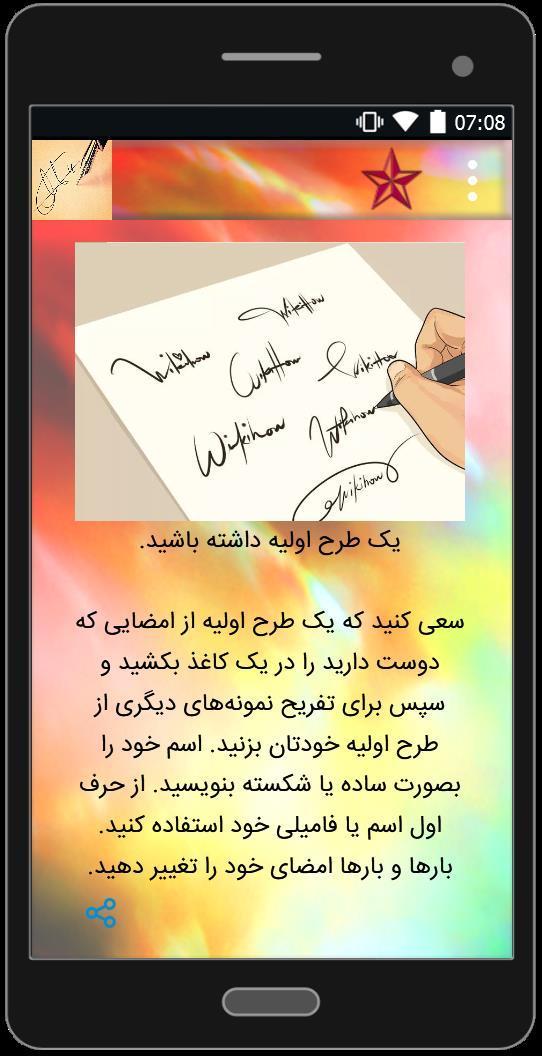 07:08
Wikihow
Wikihow
Wikihow
Wikihow
Wikihow
Wikihow
Wikihow
یک طرح اولیه داشته باشید.
سعی کنید که یک طرح اولیه از امضایی که
دوست دارید را در یک کاغذ بکشید و
سپس برای تفریح نمونه‌های دیگری از
طرح اولیه خودتان بزنید. اسم خود را
بصورت ساده یا شکسته بنویسید. از حرف
اول اسم یا فامیلی خود استفاده کنید.
بارها و بارها امضای خود را تغییر دهید.